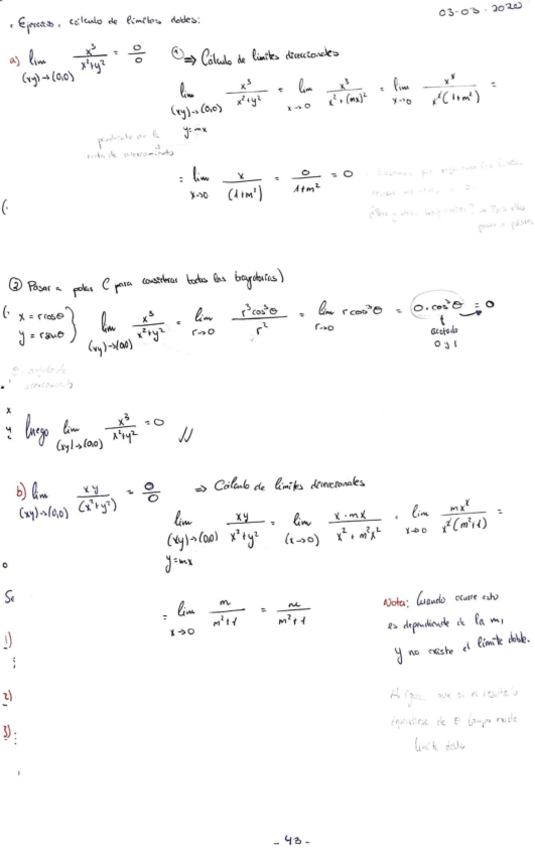 03-03-2020
. Ejercicio. cálculo de límites dobles:
a) lim (x,y)→(0,0) x³/(x²+y²) = 0/0
① ⇒ Cálculo de límites direccionales
lim (x,y)→(0,0) y=mx x³/(x²+y²) = lim x→0 x³/(x²+(mx)²) = lim x→0 x³/(x²(1+m²)) =
= lim x→0 x/(1+m²) = 0/(1+m²) = 0
② Pasar a polas (para considerar todas las trayectorias)
x = rcosθ
y = rsenθ } lim (x,y)→(0,0) x³/(x²+y²) = lim r→0 r³cos³θ/r² = lim r→0 rcos³θ = 0·cos³θ = 0
acotado
0 y 1
luego lim (x,y)→(0,0) x³/(x²+y²) = 0 //
b) lim (x,y)→(0,0) xy/(x²+y²) = 0/0 ⇒ Cálculo de límites direccionales
lim (x,y)→(0,0) y=mx xy/(x²+y²) = lim (x→0) x·mx/(x²+m²x²) = lim x→0 mx²/(x²(m²+1)) =
= lim x→0 m/(m²+1) = m/(m²+1)
Nota: Cuando ocurre esto
es dependiente de la m,
y no existe el límite doble.
Se
1)
2)
3):
- 43 -